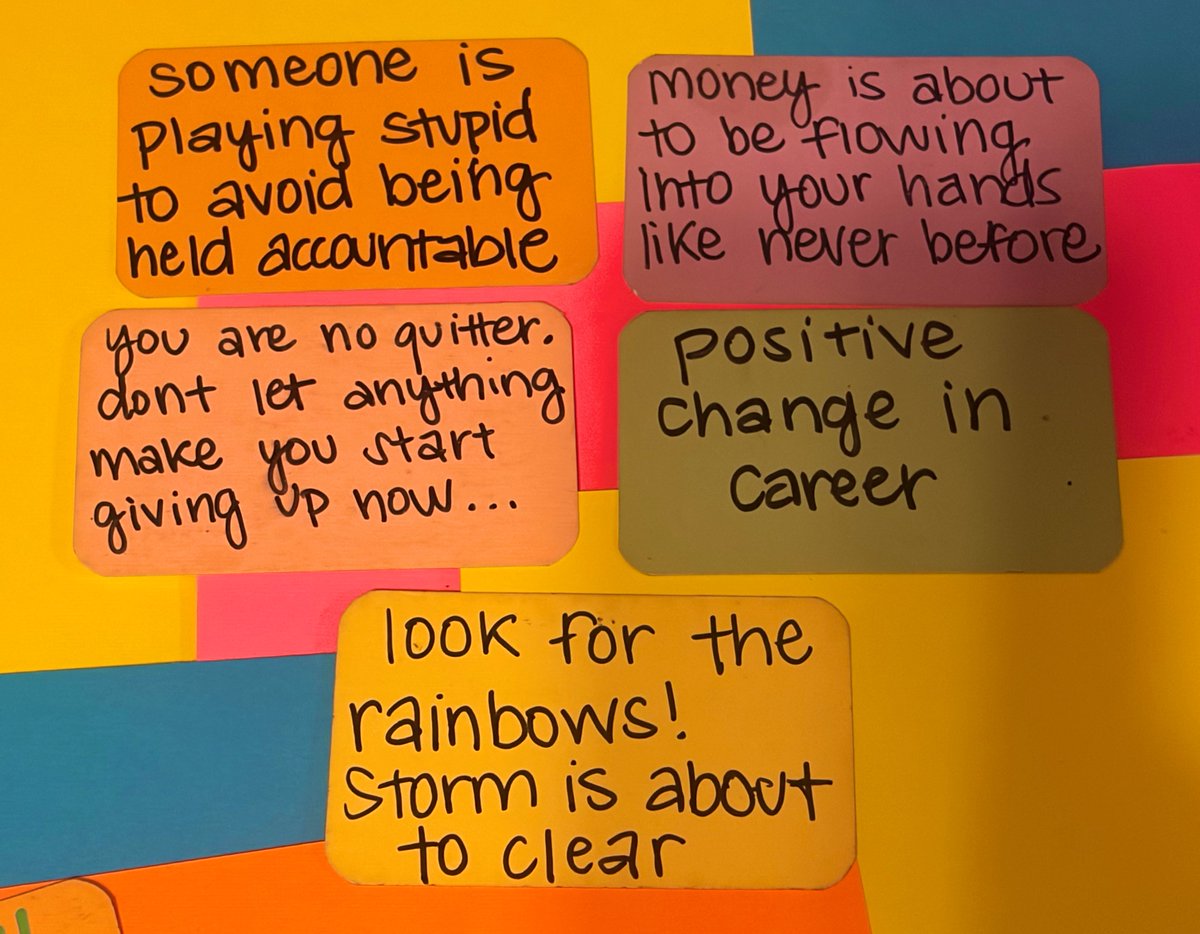 someone is
playing stupid
to avoid being
held accountable
money is about
to be flowing
into your hands
like never before
you are no quitter.
dont let anything
make you start
giving up now...
positive
change in
career
look for the
rainbows!
storm is about
to clear